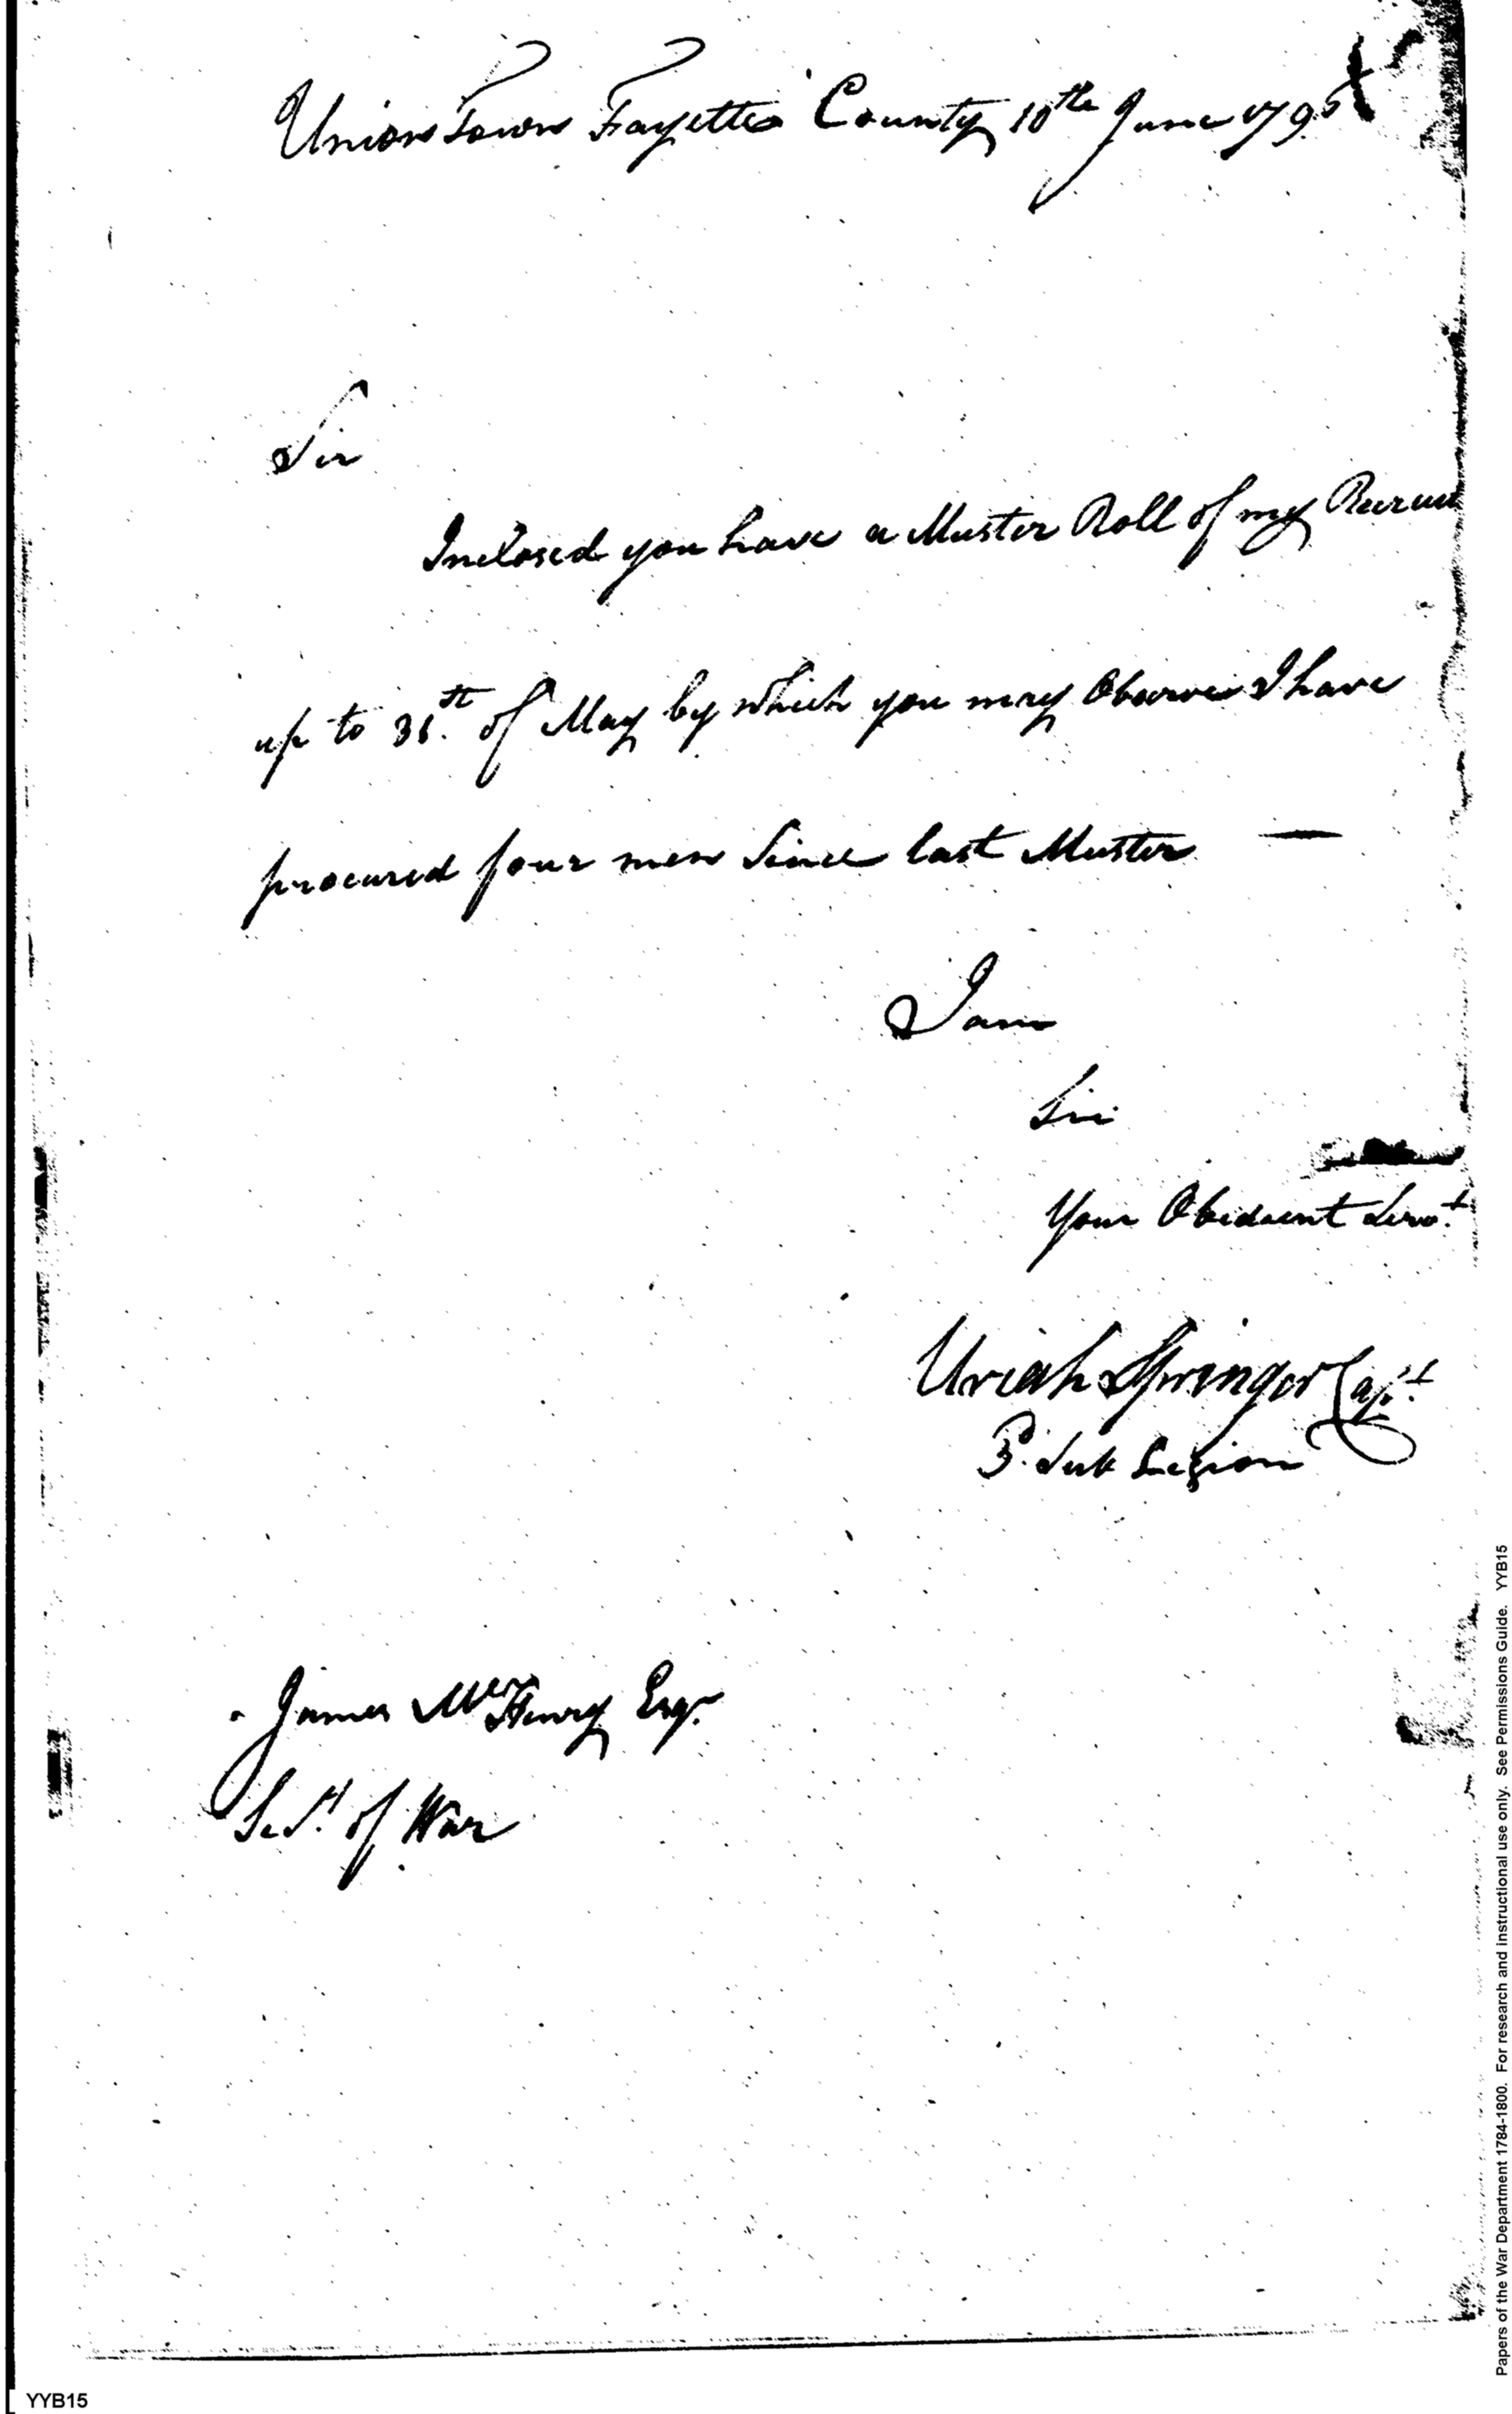 Union Town Fayette County 10th June 1796
Sir
Inclosed you have a Muster Roll of my
up to 31.st of May by which you may Observe I have
procured four men Since last Muster —
I am
Sir
Your Obedient Servt
Uriah Springer Capt
3. Sub Legion
James McHenry Esqr
of War
Papers of the War Department 1784-1800. For research and instructional use only. See Permissions Guide. YYB15
YYB15